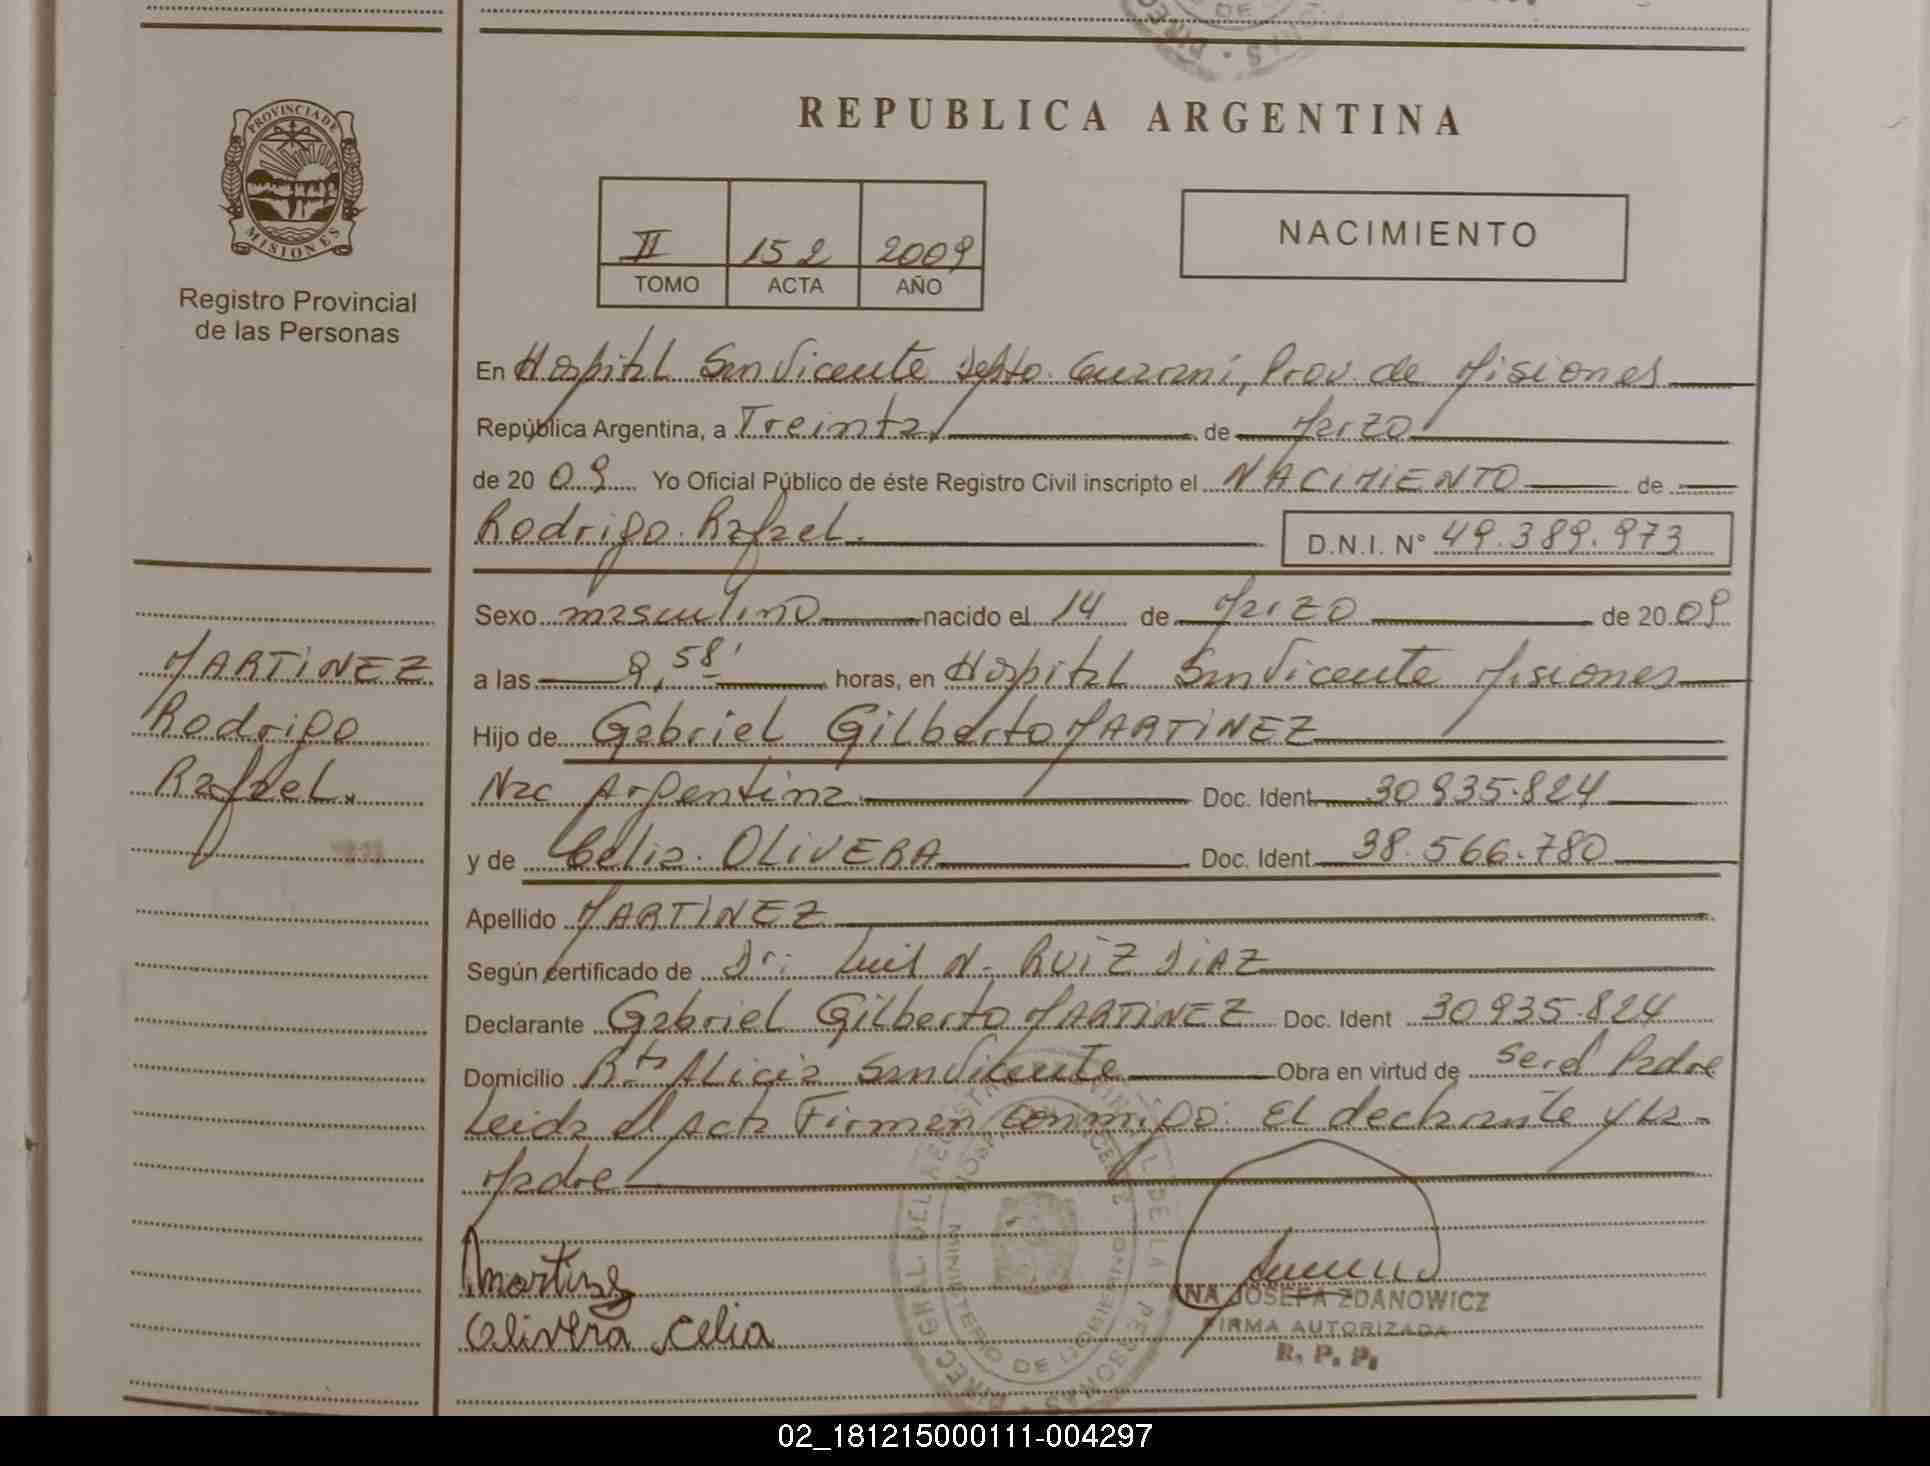 PROVINCIA DE
MISIONES
Registro Provincial
de las Personas
REPUBLICA ARGENTINA
II 152 2009
TOMO ACTA AÑO
NACIMIENTO
En Hospital San Vicente Depto. Guaraní, Prov. de Misiones
República Argentina, a Treinta, de Marzo
de 20 09 Yo Oficial Público de éste Registro Civil inscripto el NACIMIENTO de
Rodrigo Rafael. D.N.I. N° 49.389.973
Sexo masculino nacido el 14 de Marzo de 20 09
a las 8,58' horas, en Hospital San Vicente Misiones
Hijo de Gabriel Gilberto MARTINEZ
Nac Argentina Doc. Ident 30935.824
y de Celia OLIVERA Doc. Ident. 38.566.780
Apellido MARTINEZ
Según certificado de Dr: Luis N. RUIZ DIAZ
Declarante Gabriel Gilberto MARTINEZ Doc. Ident 30935.824
Domicilio Rta Alicia San Vicente Obra en virtud de Ser el Padre
Leida el Acta Firman conmigo: El declarante y La
Madre
MARTINEZ
Rodrigo
Rafael.
Martinez
Olivera Celia
ANA JOSEFA ZDANOWICZ
FIRMA AUTORIZADA
R. P. P.
02_181215000111-004297